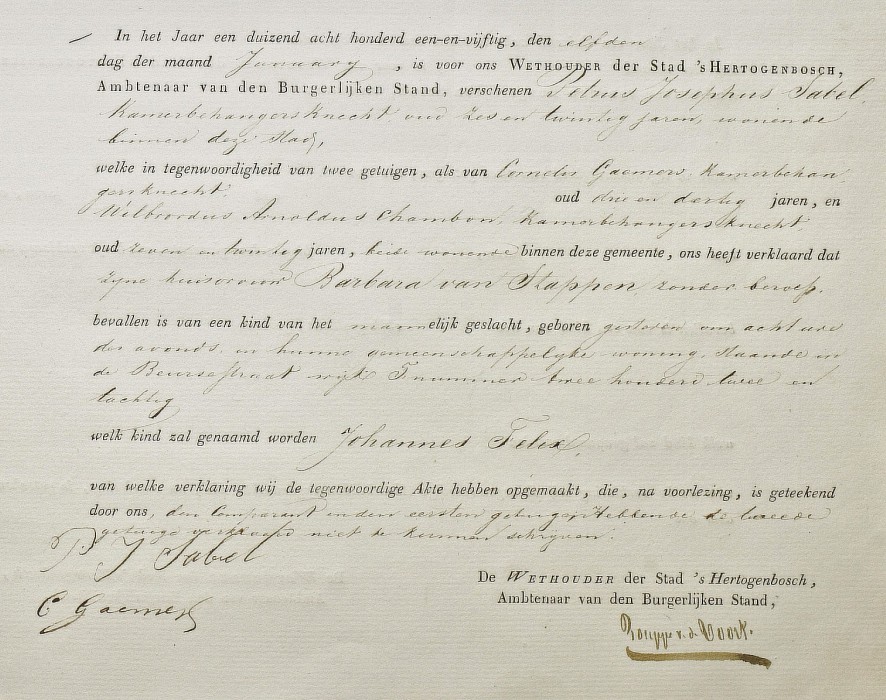 In het Jaar een duizend acht honderd een-en-vijftig, den elfden
dag der maand January, is voor ons WETHOUDER der Stad 's HERTOGENBOSCH,
Ambtenaar van den Burgerlijken Stand, verschenen Petrus Josephus Sabel,
Kamerbehangersknecht oud zes en twintig jaren, wonende
binnen deze Stad,
welke in tegenwoordigheid van twee getuigen, als van Cornelis Gaemers, Kamerbehan
gersknecht. oud drie en dertig jaren, en
Wilbrordus Arnoldus Chambon, Kamerbehangersknecht,
oud zeven en twintig jaren, beide wonende binnen deze gemeente, ons heeft verklaard dat
zyne huisvrouw Barbara van Stappen, zonder beroep.
bevallen is van een kind van het mannelijk geslacht, geboren gisteren om acht ure
des avonds, in hunne gemeenschappelyke woning, staande in
de Beursestraat wyk F nummer twee honderd twee en
tachtig
welk kind zal genaamd worden Johannes Felix.
van welke verklaring wij de tegenwoordige Akte hebben opgemaakt, die, na voorlezing, is geteekend
door ons, den Comparant en den eersten getuigen, Hebbende de tweede
getuige verklaard niet te kunnen schryven.
P. J Sabel
C. Gaemers
De WETHOUDER der Stad 's Hertogenbosch,
Ambtenaar van den Burgerlijken Stand,
v. d. Voort.